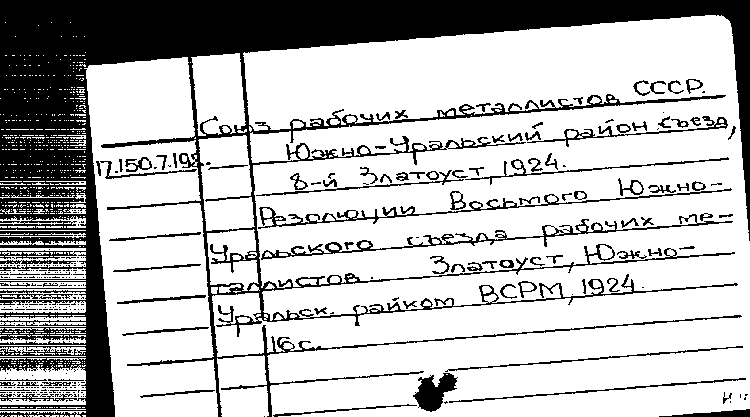 Союз рабочих металлистов СССР.
17.150.7.198. Южно-Уральский район съезд,
8-й Златоуст, 1924.
Резолюции Восьмого Южно-
Уральского съезда рабочих ме-
таллистов. Златоуст, Южно-
Уральск. райком ВСРМ, 1924.
16 с.